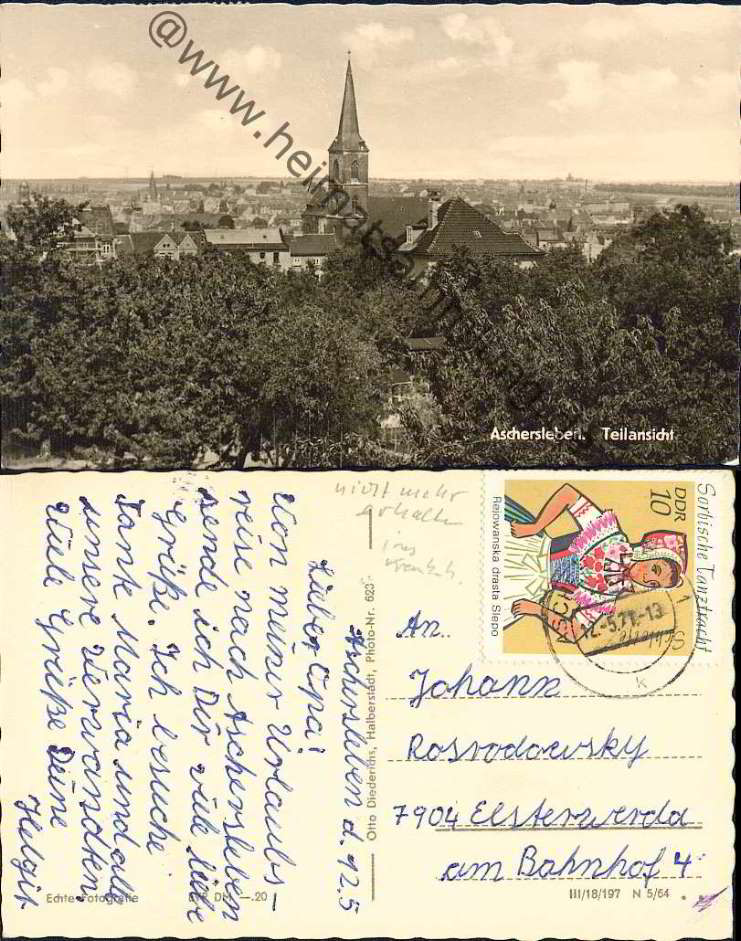 @www.heimatsammlung.de
Aschersleben. Teilansicht
Aschersleben d. 12.5
Lieber Opa!
Von meiner Urlaubs-
reise nach Aschersleben
sende ich Dir viele liebe
Grüße. Ich besuche
Tante Maria und alle
unsere Verwandten
Viele Grüße Deine
Helgit
nicht mehr
erhalten
ins
Otto Diederichs, Halberstadt, Photo-Nr. 623
Echte Fotografie
EVP DM —.20
Sorbische Tanztracht
DDR
10
Rejowanska drasta Slepo
Schleife
12.-5.71.-13
k
An.
Johann
Rosvodowsky
7904 Elsterwerda
am Bahnhof 4
III/18/197 N 5/64